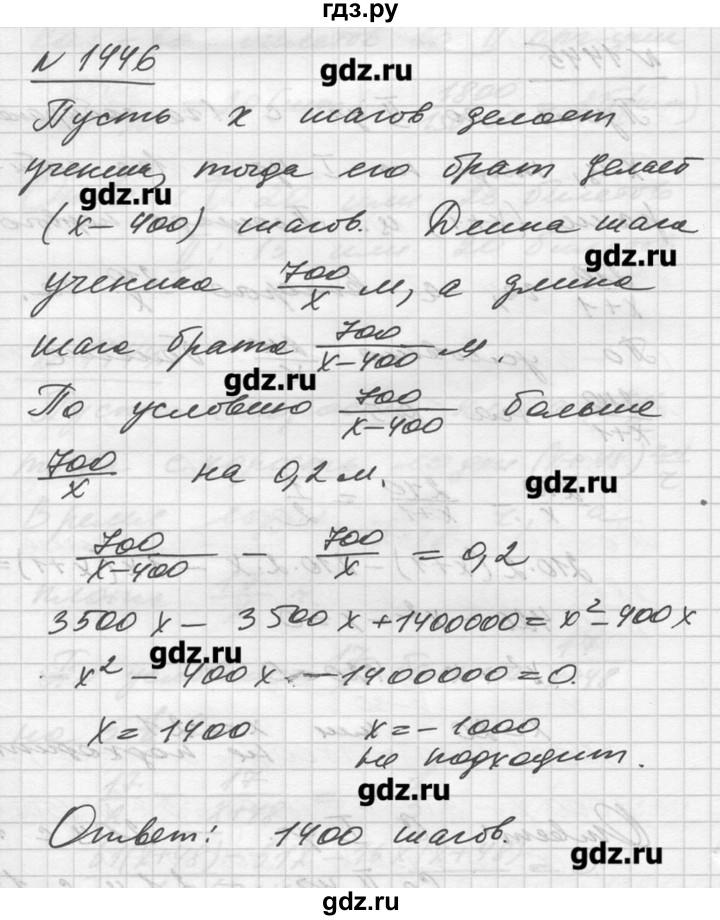 гдз.ру
№ 1446
gdz.ru
Пусть x шагов делает
ученик, тогда его брат делает
gdz.ru
(x – 400) шагов. Длина шага
gdz.ru
ученика 700/x м, а длина
шага брата 700/(x–400) м.
gdz.ru
По условию 700/(x–400) больше
700/x на 0,2 м.
gdz.ru
700/(x–400) – 700/x = 0,2
3500x – 3500x + 1400000 = x² – 400x
gdz.ru
x² – 400x – 1400000 = 0.
x = 1400 x = – 1000
не подходит.
gdz.ru
Ответ: 1400 шагов.
gdz.ru
gdz.ru